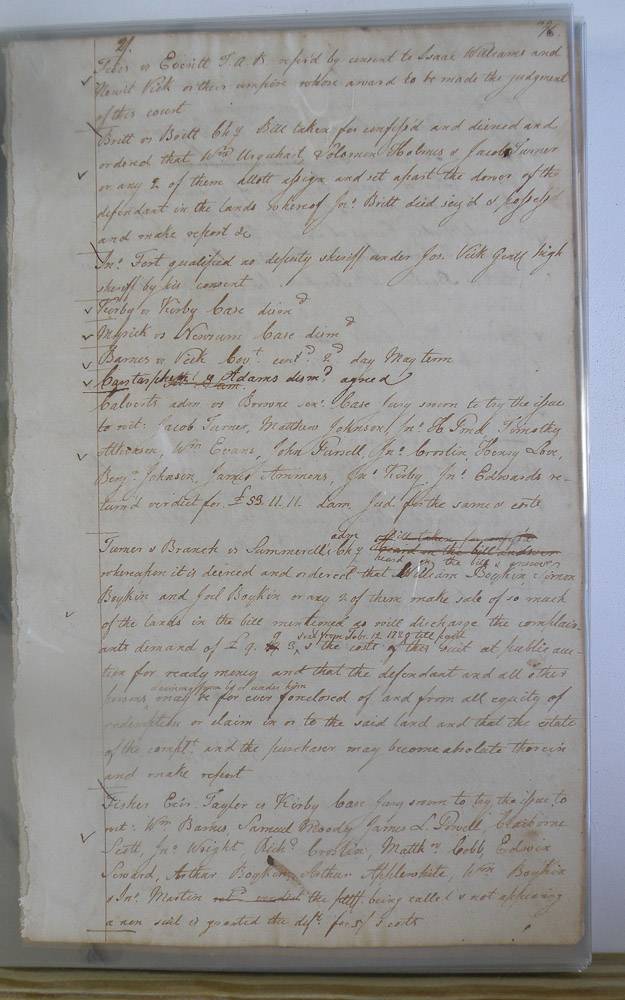 2/. 96.
vs Everitt T. A. B. refer'd by consent to Isaac Williams and
Newit Vick or their umpire whose award to be made the judgment
of this court
Britt vs Britt Ch'y Bill taken for confess'd and decreed and
ordered that Wm Urquhart, Solomon Holmes & Jacob Turner
or any 2 of them allott assign and set apart the dower of the
defendant in the lands whereof Jno. Britt died seiz'd & possess'd
and make report &c
Jno. Fort qualified as deputy sheriff under Jos. Vick Gentl high
sheriff by his consent
Kirby vs Kirby Case dismd
Myrick vs Newsum Case dismd
Barnes vs Vick Covt. contd. 2d day May term
vs Adams dismd. agreed
Calverts adm vs Browne exr. Case Jury sworn to try the issue
to wit: Jacob Turner, Matthew Johnson, Jno. H. Timothy
Atkinson, Wm Evans, John Pursell, Jno. Croslin, Henry Love,
Benjn. Johnson, James Ammons, Jno. Kirby, Jno. Edwards re-
turn'd verdict for £53.11.11. Dam Jud. for the same & costs
adm Bill taken for
Turner & Branch vs Summerell's Ch'y heard on the bill and
heard on the bill & answer
whereupon it is decreed and ordered that William Boykin, Simon
Boykin and Joel Boykin or any 2 of them make sale of so much
of the lands in the bill mentioned as will discharge the complain-
ants demand of £9. 9. 3, & the costs of this suit at public auc-
tion for ready money and that the defendant and all other
claiming from by or under him
persons may be for ever foreclosed of and from all equity of
redemption or claim in or to the said land and that the estate
of the complt. and the purchaser may become absolute therein
and make report
Fisher Exr. Taylor vs Kirby Case Jury sworn to try the issue to
wit: Wm Barnes, Samuel Moody, James L. Powell, Claiborne
Scott, Jno. Wright, Richd Croslin, Matthw Cobb, Edwin
Seward, Arthur Boykin, Arthur Applewhite, Wm Boykin
& Jno. Martin retd verdict the pltff. being called & not appearing
a non suit is granted the deft. for 5/ & costs